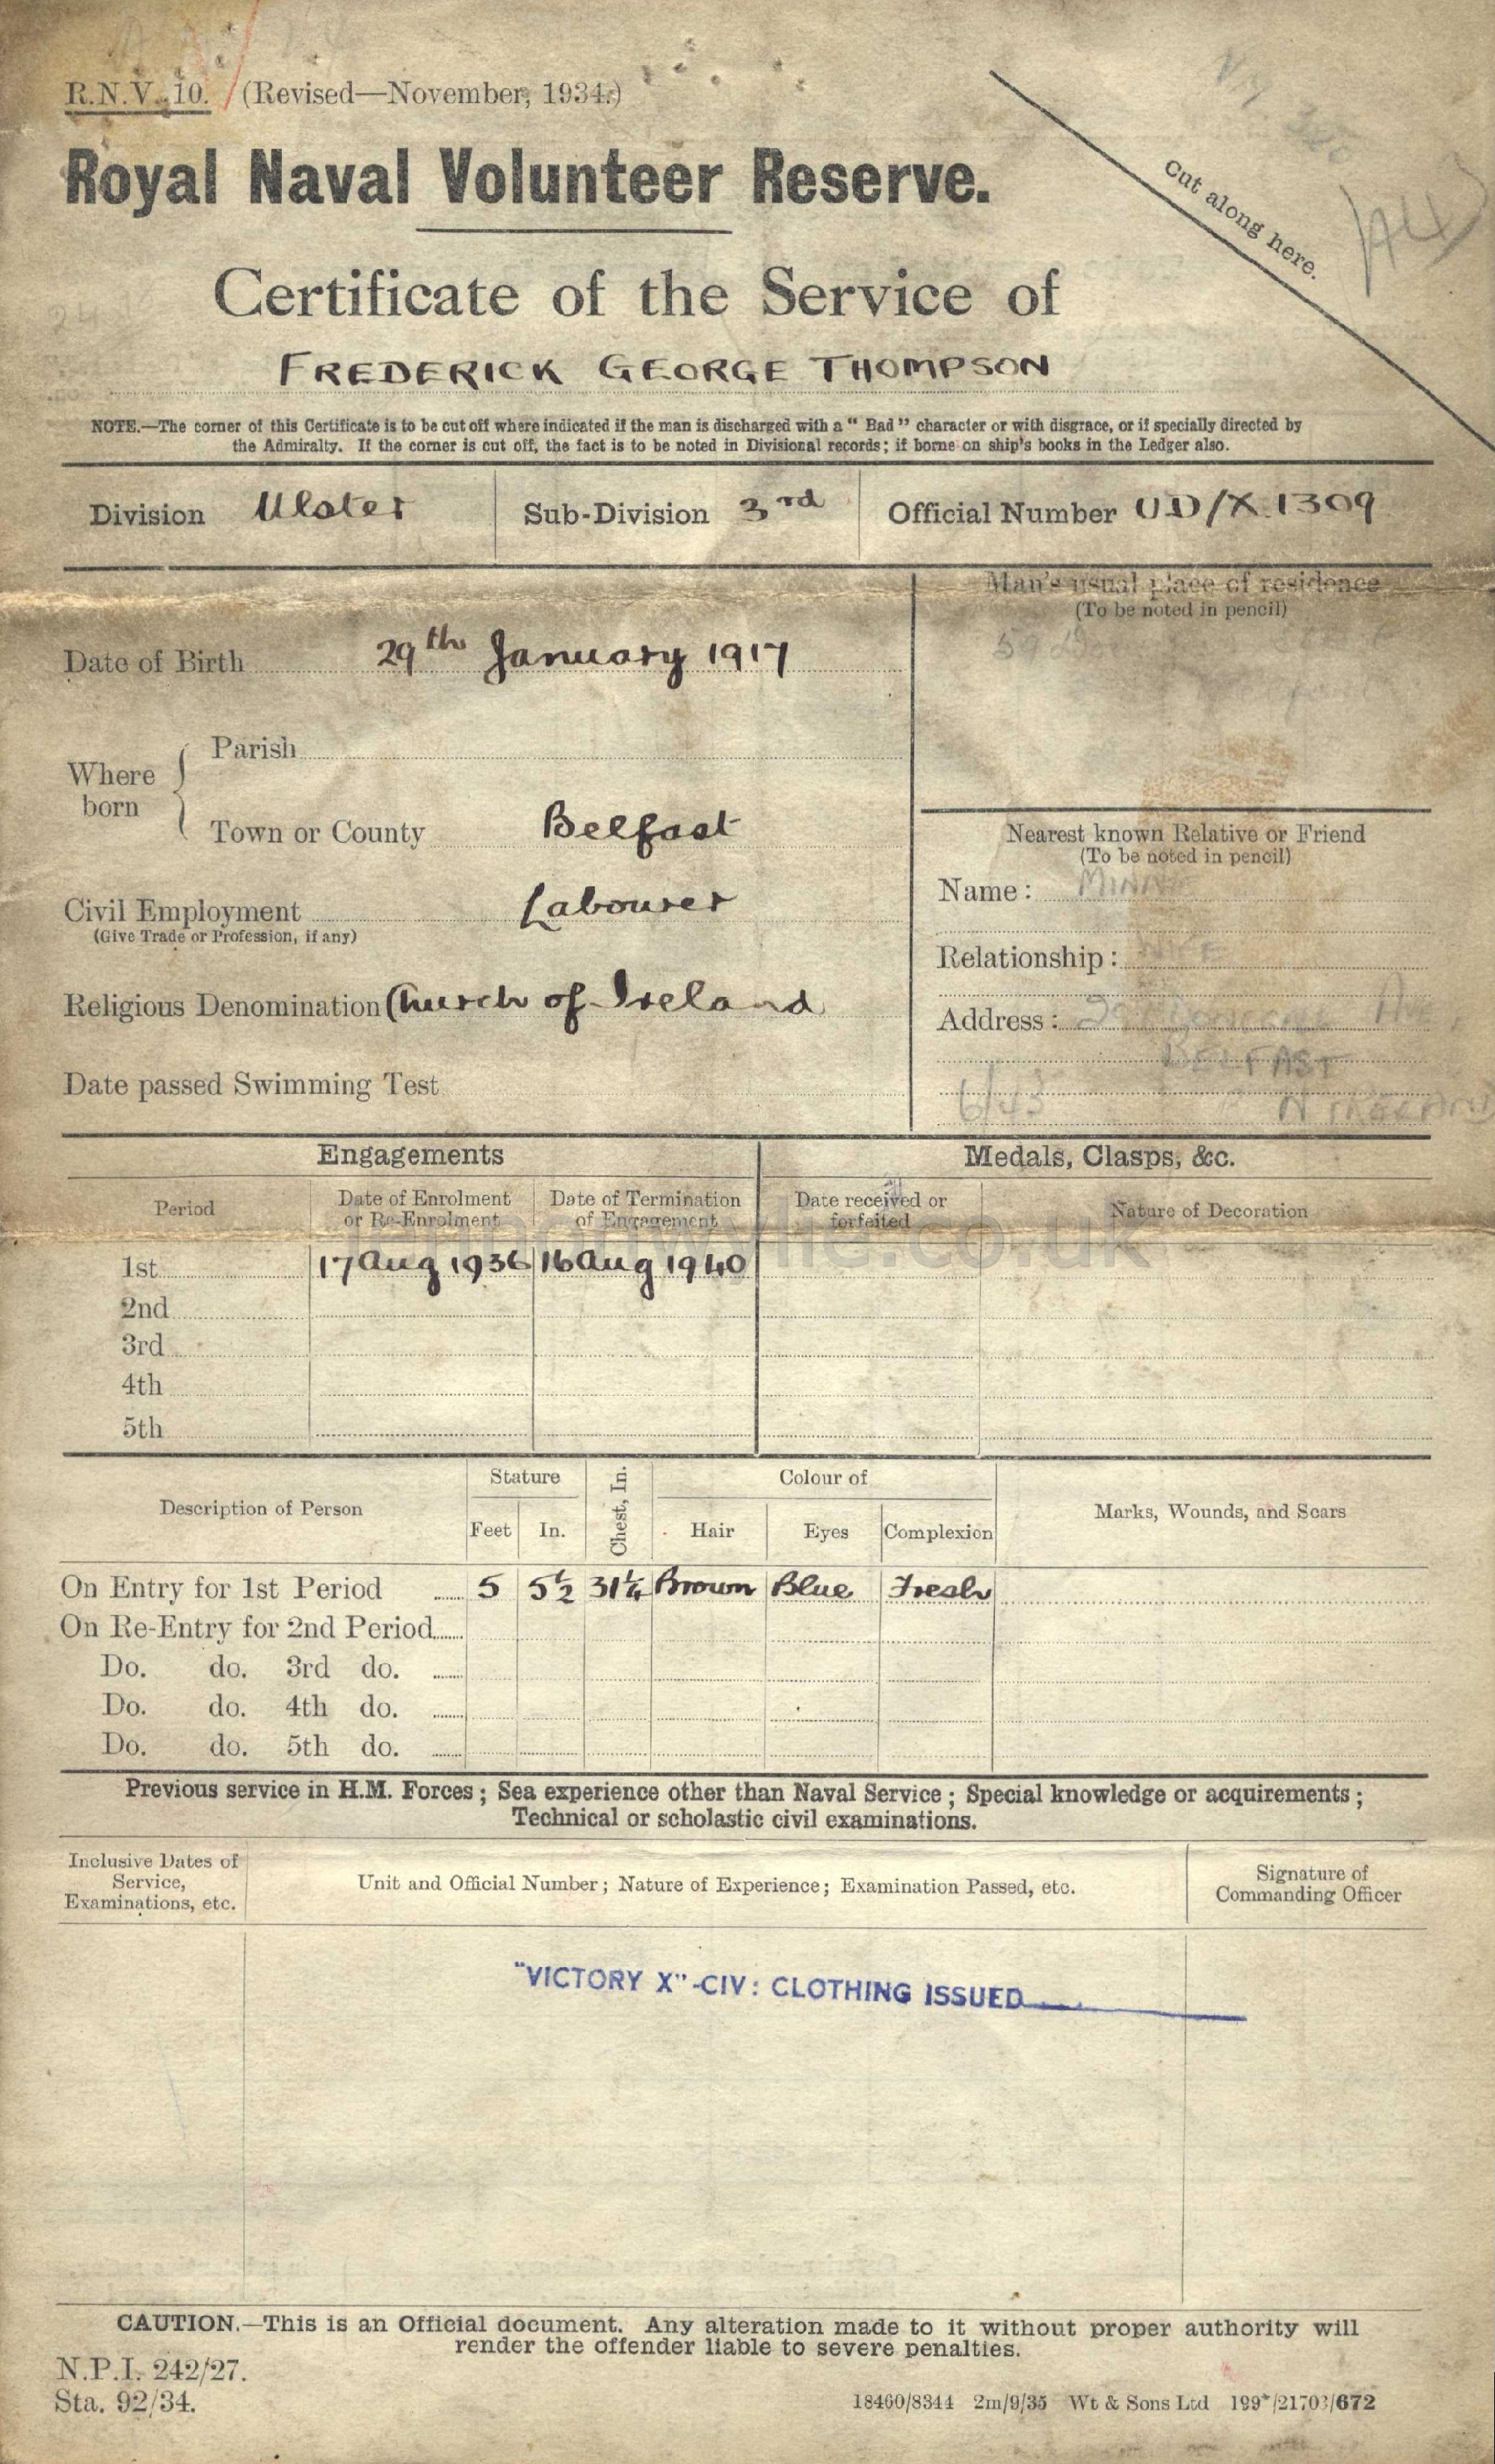 R.N.V. 10. (Revised—November, 1934.)
Royal Naval Volunteer Reserve.
Cut along here.
Certificate of the Service of
FREDERICK GEORGE THOMPSON
NOTE.—The corner of this Certificate is to be cut off where indicated if the man is discharged with a “ Bad ” character or with disgrace, or if specially directed by
the Admiralty. If the corner is cut off, the fact is to be noted in Divisional records; if borne on ship's books in the Ledger also.
Division Ulster Sub-Division 3rd Official Number UD/X 1309
Man's usual place of residence
(To be noted in pencil)
59
Date of Birth 29th January 1917
Where born
Parish
Town or County Belfast
Nearest known Relative or Friend
(To be noted in pencil)
Name: MINNIE
Civil Employment Labourer
(Give Trade or Profession, if any)
Relationship: WIFE
Religious Denomination Church of Ireland
Address: AVE,
BELFAST
Date passed Swimming Test
6/43 N IRELAND
Engagements Medals, Clasps, &c.
Period Date of Enrolment or Re-Enrolment Date of Termination of Engagement Date received or forfeited Nature of Decoration
lennonwylie.co.uk
1st 17 Aug 1936 16 Aug 1940
2nd
3rd
4th
5th
Description of Person Stature Chest, In. Colour of Marks, Wounds, and Scars
Feet In. Hair Eyes Complexion
On Entry for 1st Period 5 5½ 31¼ Brown Blue Fresh
On Re-Entry for 2nd Period
Do. do. 3rd do.
Do. do. 4th do.
Do. do. 5th do.
Previous service in H.M. Forces; Sea experience other than Naval Service; Special knowledge or acquirements;
Technical or scholastic civil examinations.
Inclusive Dates of Service, Examinations, etc. Unit and Official Number; Nature of Experience; Examination Passed, etc. Signature of Commanding Officer
"VICTORY X"-CIV: CLOTHING ISSUED
CAUTION.—This is an Official document. Any alteration made to it without proper authority will
render the offender liable to severe penalties.
N.P.I. 242/27.
Sta. 92/34.
18460/8344 2m/9/35 Wt & Sons Ltd /672